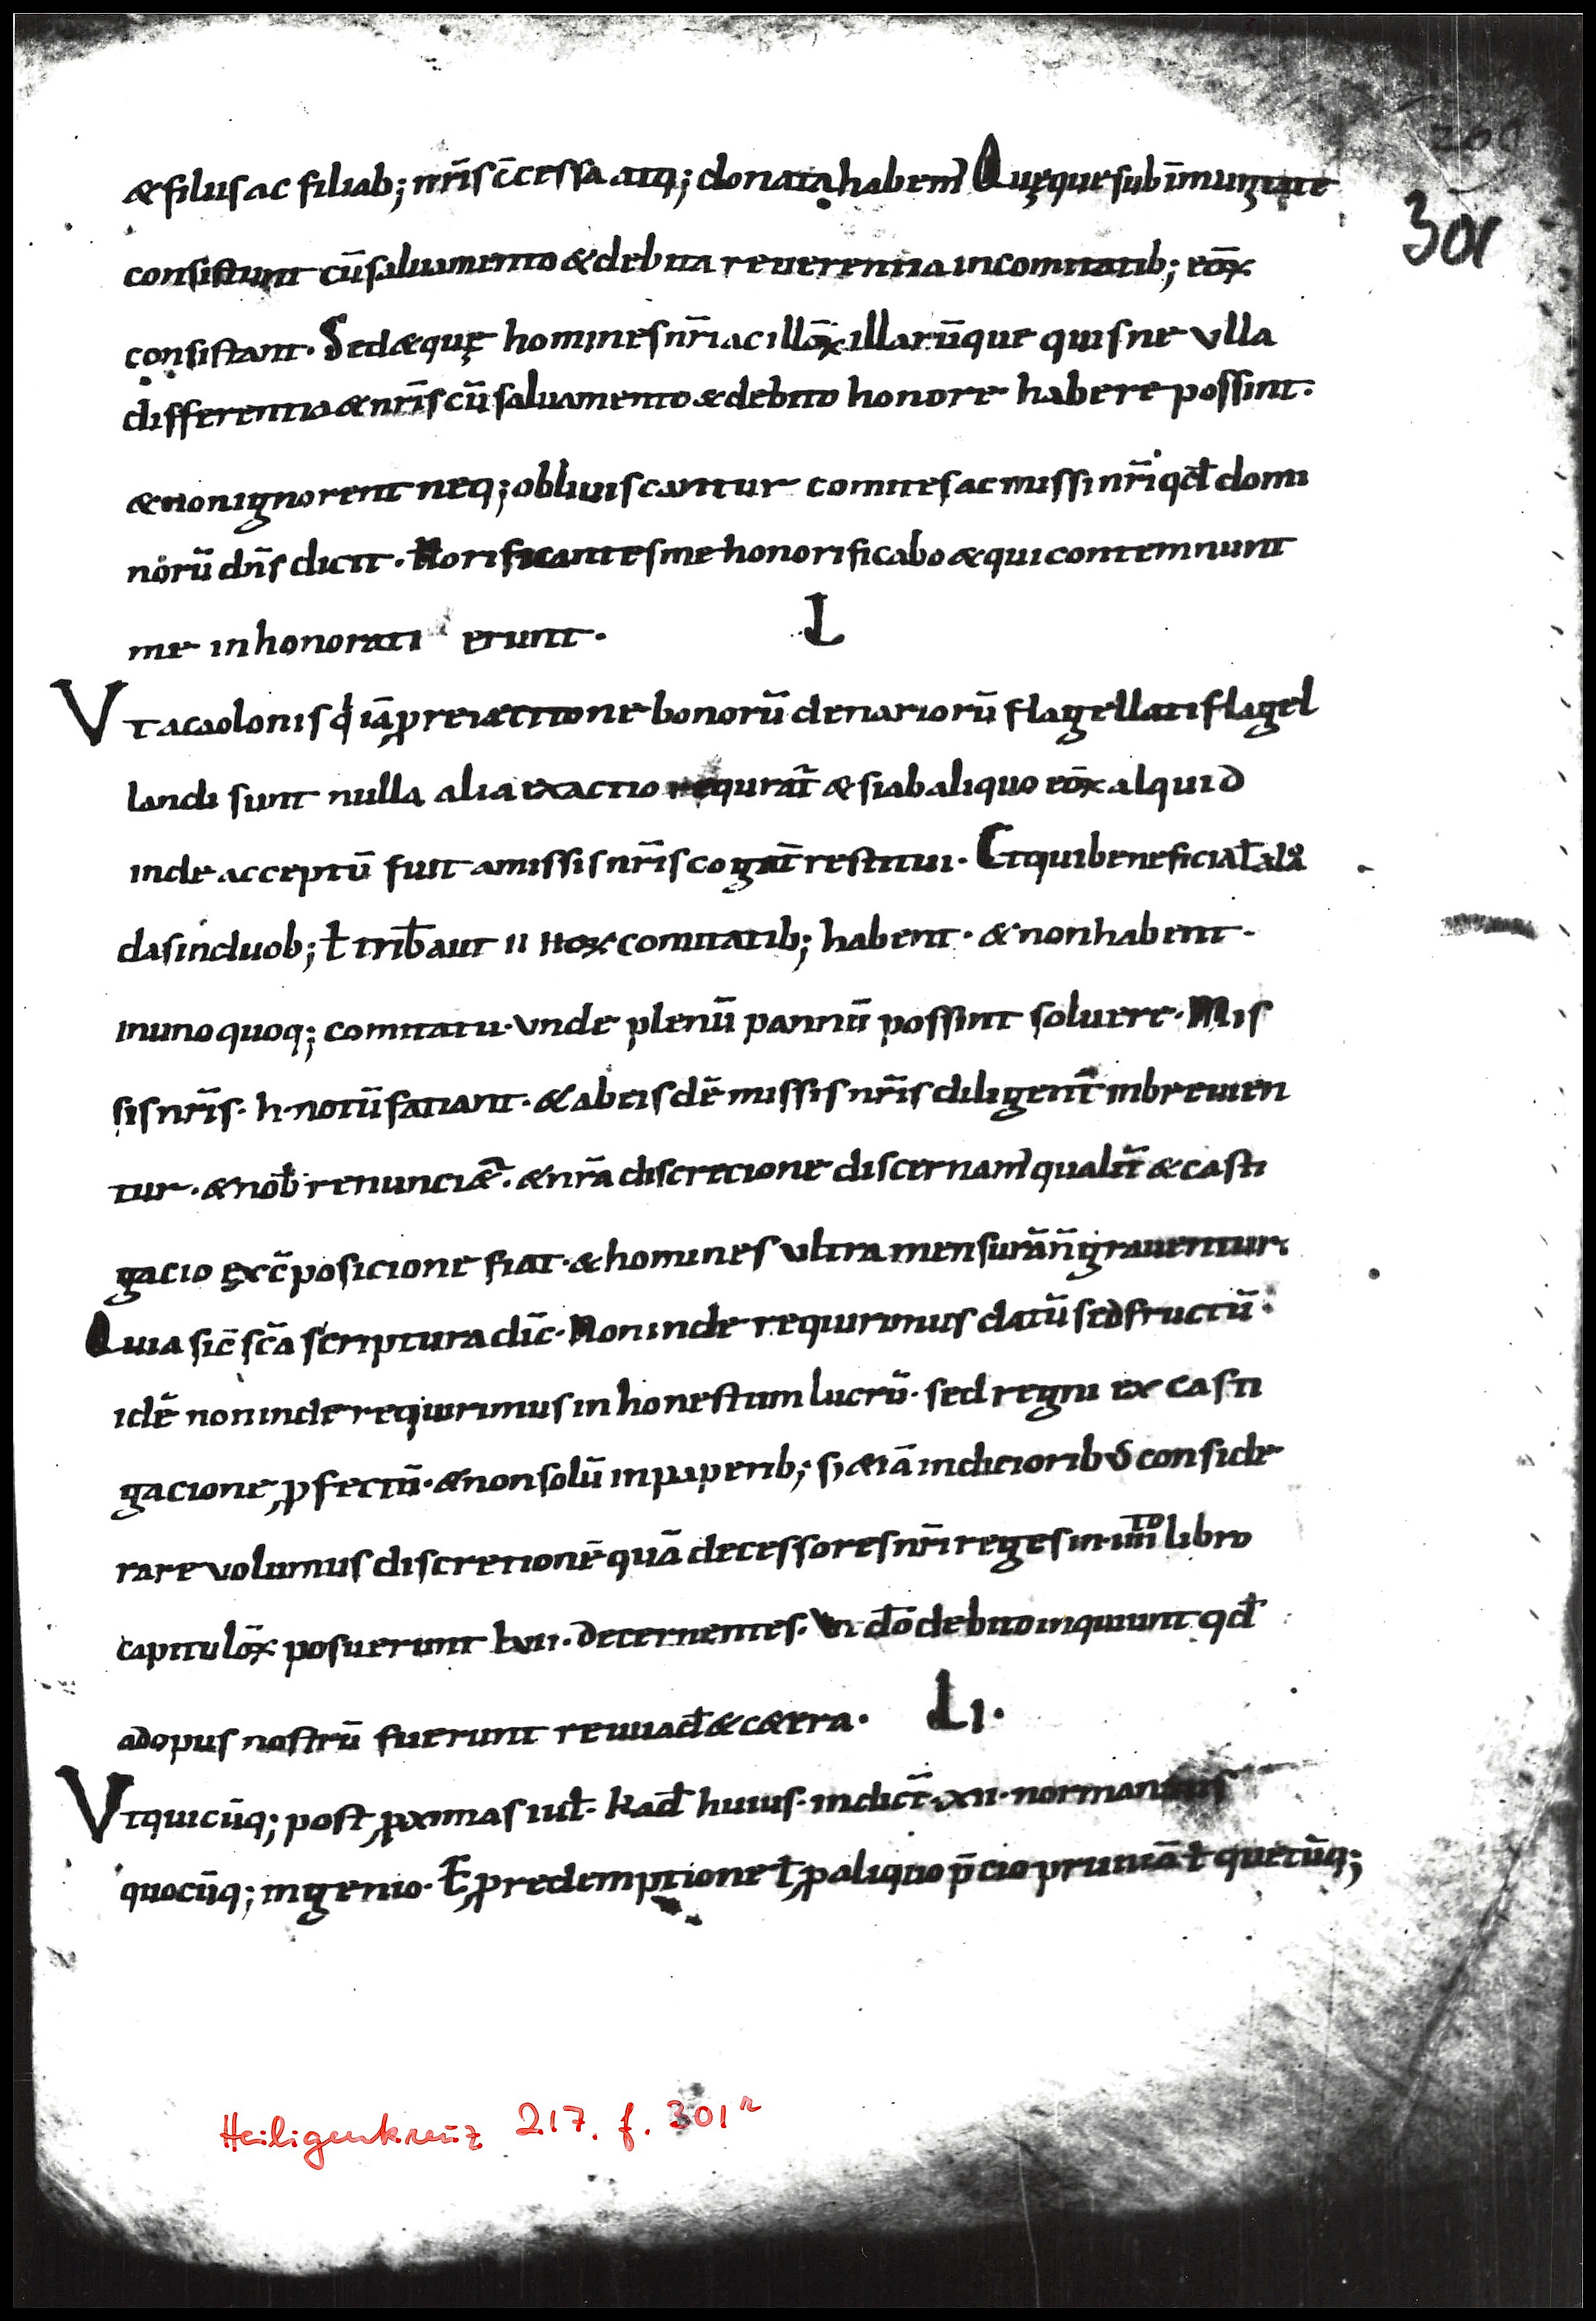 269
& filiis ac filiab; nr̄is c̄cessa atq; donata habem̄ Quęque sub īmunitate
301
consistunt cū saluamento & debita reuerentia in comitatib; eoꝝ
consistant. Sed æquę homines nr̄i ac illoꝝ illarūque quis ne vlla
differentia & nr̄is cū saluamento & debito honore habere possint.
& non ignorent neq; obliuiscantur comites ac missi nr̄i qd̄ domi
norū dn̄s dicit. Norificantes me honorificabo & qui contemnunt
me inhonorati erunt. L
Vt acaolonis q̄ iā p reiectione bonorū denariorū flagellati flagel
landi sunt nulla alia exactio requirat̄ & si ab aliquo eoꝝ alquid
inde acceptū fuit a missis nr̄is cogat̄ restitui. Et qui beneficia ł alo
das in duob; ł trib̄ aut IIIIoꝝ comitatib; habent. & non habent.
In uno quoq; comitatu. vnde plenū pannū possint soluere. Mis
sis nr̄is. h. notū faciant. & ab eisdē missis nr̄is diligent̄ inbreuien
tur. & nob̄ renunciæt̄. & nr̄a discrecione discernam̄ qualit̄ & casti
gacio ęx c̄posicione fiat. & homines vltra mensurā n̄ grauentur.
Quia sic̄ sc̄a scriptura dic̄. Non inde requirimus datū sed fructū.
idē non inde requirimus inhonestum lucrū. sed regni ex casti
gacione pfectū. & non solū in pauperib; s; &iā in dicioribꝰ conside
rare volumus discretionē quā decessores nr̄i reges in IIIIto libro
capituloꝝ posuerunt lvii. decernentes. Vn d̄o debito inquiunt qd̄
ad opus nostrū fuerunt reuuad̄ & cætera. LI.
Vt quicūq; post pximas iul̄. kad̄ huius. indict̄. xii. normannis
quocūq; ingenio. ł p redemptione ł p aliquo p̄cio pruniā ł quecūq;
Heiligenkreuz 217. f. 301r